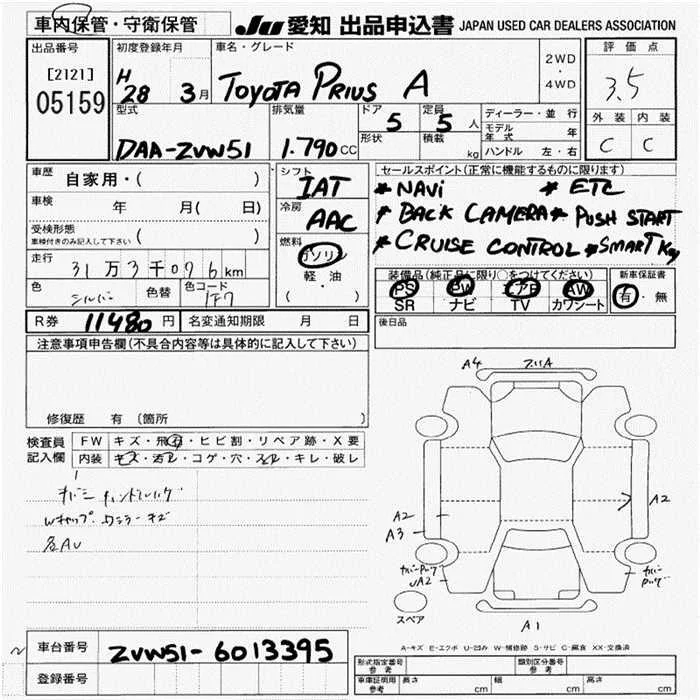 車内保管・守衛保管
JU 愛知 出品申込書 JAPAN USED CAR DEALERS ASSOCIATION
出品番号
[2121]
05159
初度登録年月
H28 3月
車名・グレード
TOYOTA PRIUS A
2WD
・
4WD
評価点
3.5
外装 内装
C C
型式
DAA-ZVW51
排気量
1.790cc
ドア
5
形状
定員
5人
積載
kg
ディーラー・並行
モデル年式 年
ハンドル 左・右
車歴
自家用・( )
車検
年 月( 日)
受検形態
車検付きのみ記入して下さい ( )
走行
31万3千076km
色
シルバー
色替
色コード
1F7
シフト
IAT
冷房
AAC
燃料
ガソリン
軽・油
( )
セールスポイント(正常に機能するものに限ります)
* NAVi * ETC
* BACK CAMERA * PUSH START
* CRUISE CONTROL * SMART Key
装備品(純正品に限り○をつけてください)
PS PW エアB AW
SR ナビ TV カワシート
新車保証書
有・無
R券 11480円
名変通知期限 月 日
後日品
注意事項申告欄(不具合内容等は具体的に記入して下さい)
修復歴 有 〔箇所 〕
検査員
記入欄
FW キズ・飛石・ヒビ割・リペア跡・X要
内装 キズ・汚レ・コゲ・穴・スレ・キレ・破レ
Wキャップ
各AU
A4
A2
A2
A3
UA2
A1
スペア
A-キズ E-エクボ U-凹み W-補修跡 S-サビ C-腐食 XX-交換済
車台番号
ZVW51-6013395
登録番号
形式指定番号
参考
類別区分番号
参考
車庫証明用
参考
長さ cm
幅 cm
高さ cm